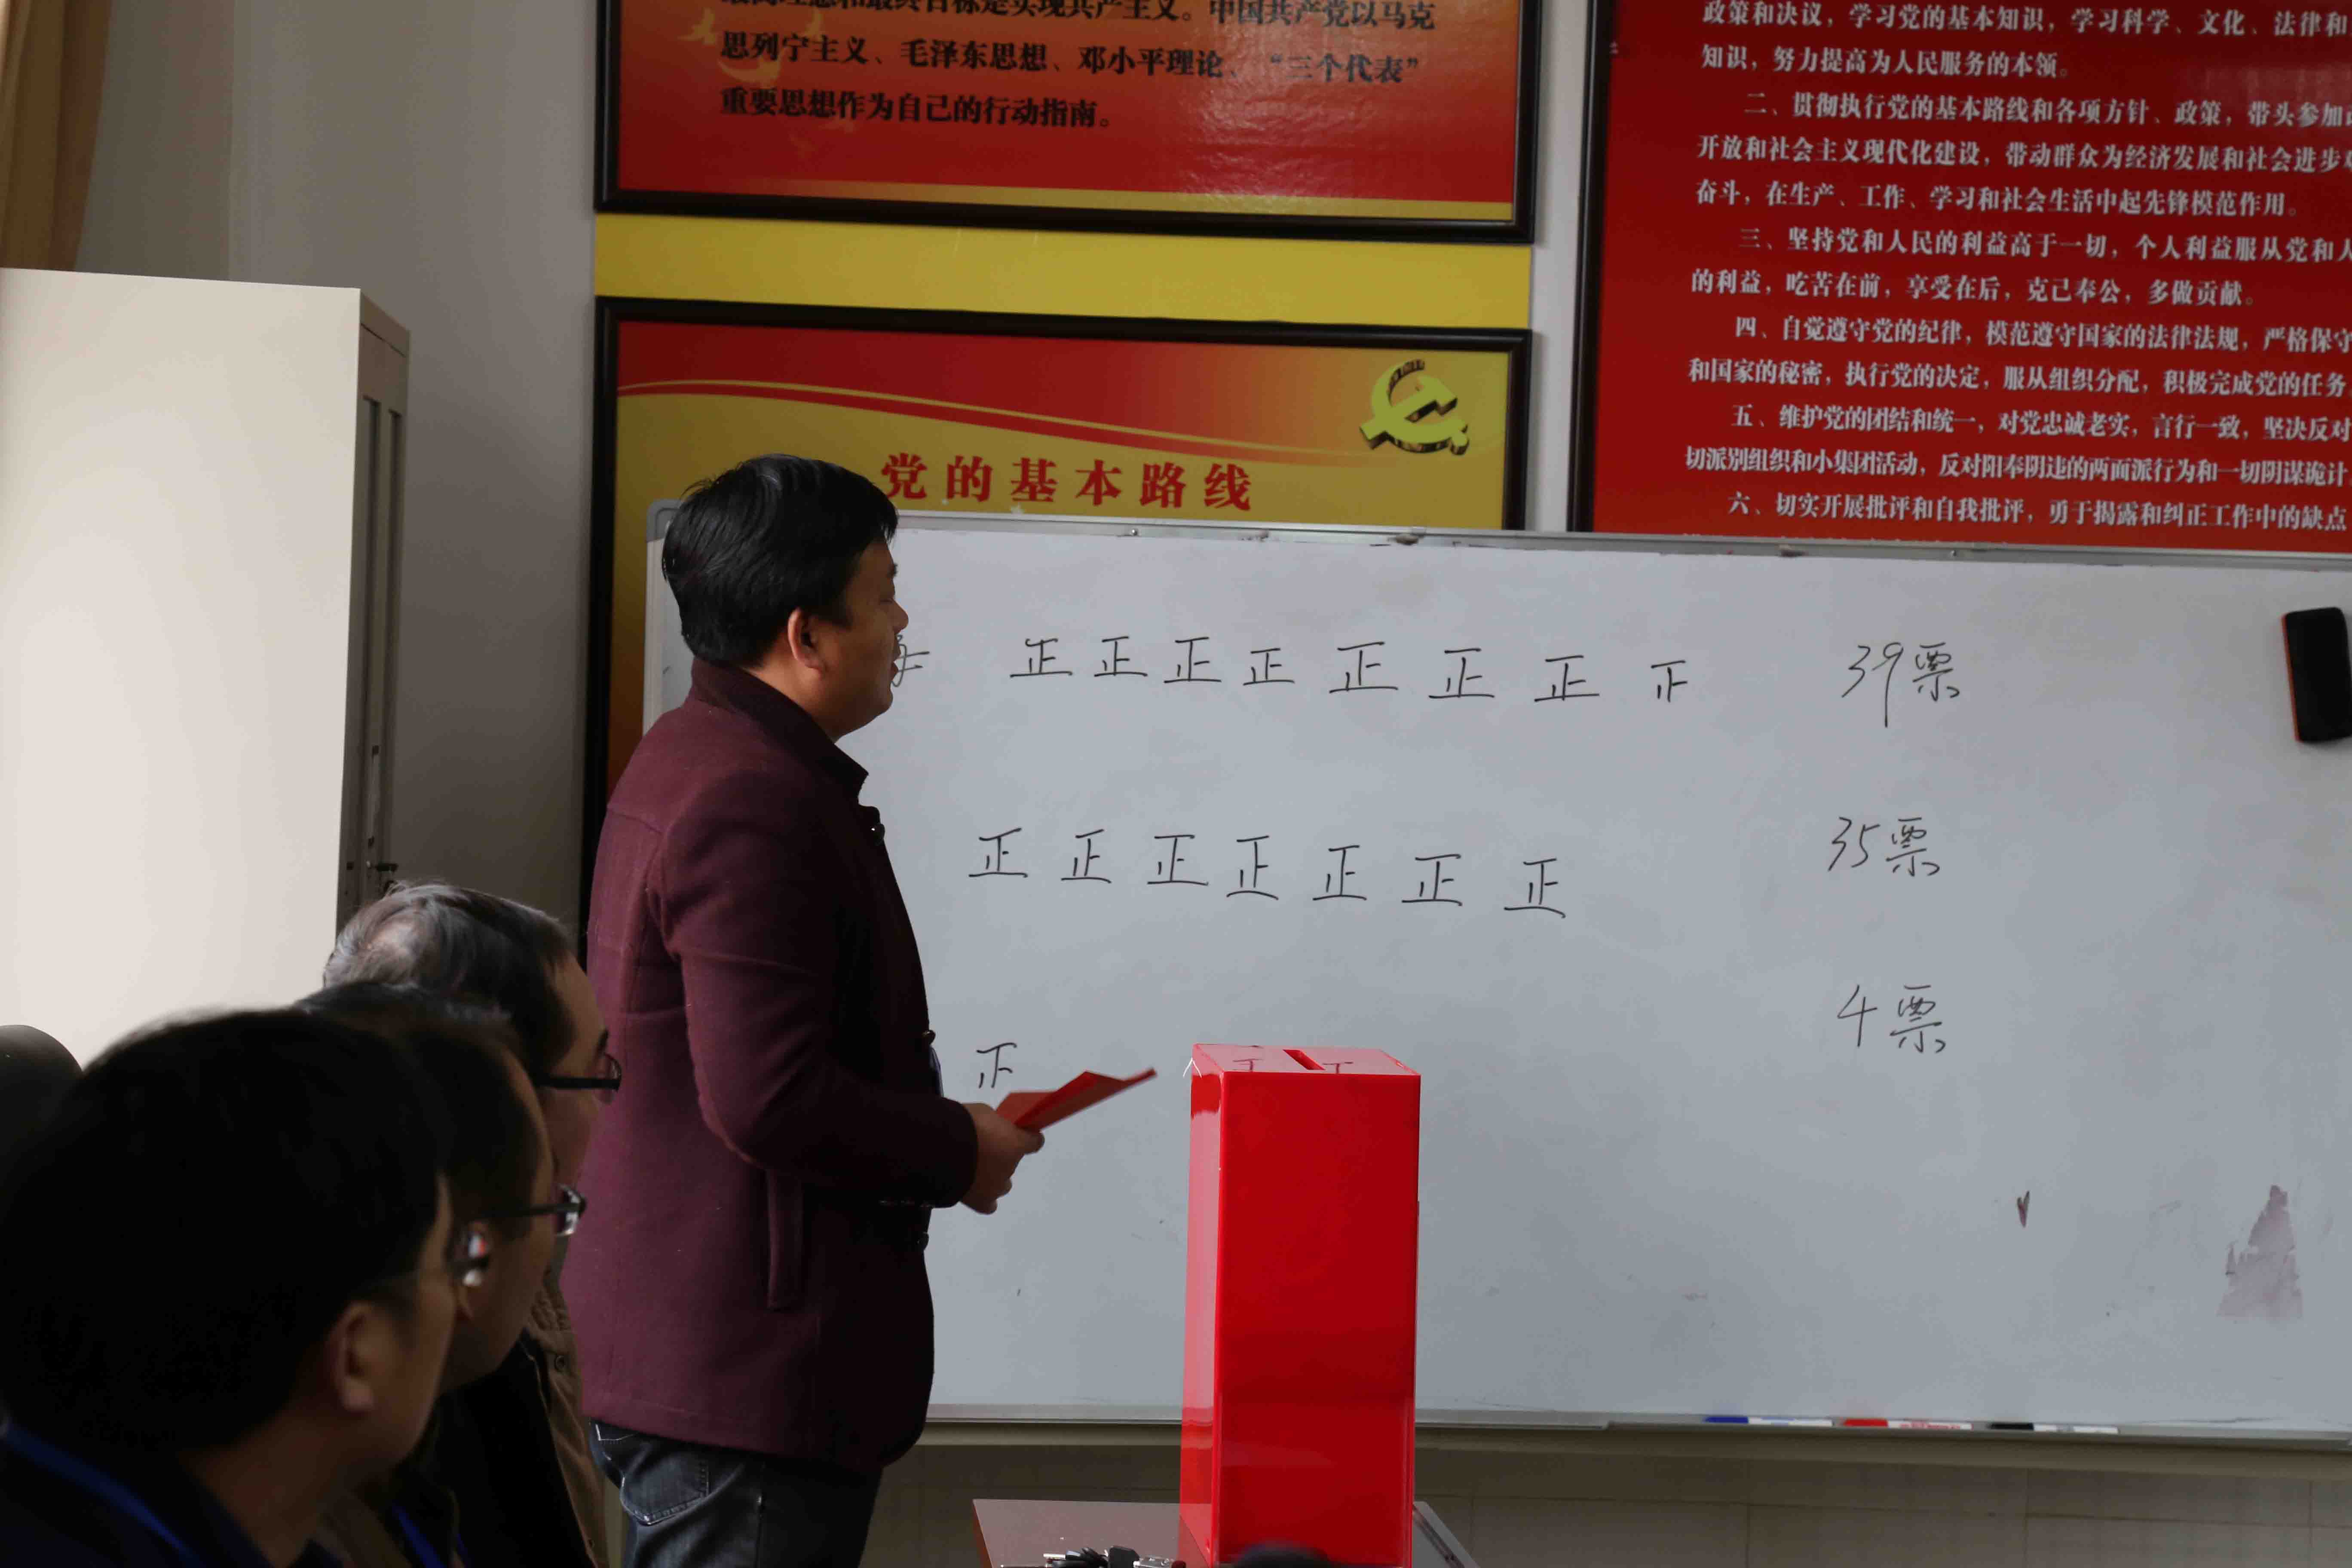 最高理想和最终目标是实现共产主义。中国共产党以马克
思列宁主义、毛泽东思想、邓小平理论、“三个代表”
重要思想作为自己的行动指南。
政策和决议，学习党的基本知识，学习科学、文化、法律和
知识，努力提高为人民服务的本领。
二、贯彻执行党的基本路线和各项方针、政策，带头参加
开放和社会主义现代化建设，带动群众为经济发展和社会进步
奋斗，在生产、工作、学习和社会生活中起先锋模范作用。
三、坚持党和人民的利益高于一切，个人利益服从党和人
的利益，吃苦在前，享受在后，克己奉公，多做贡献。
四、自觉遵守党的纪律，模范遵守国家的法律法规，严格保守
和国家的秘密，执行党的决定，服从组织分配，积极完成党的任务
五、维护党的团结和统一，对党忠诚老实，言行一致，坚决反对
切派别组织和小集团活动，反对阳奉阴违的两面派行为和一切阴谋诡计
六、切实开展批评和自我批评，勇于揭露和纠正工作中的缺点
党的基本路线
正 正 正 正 正 正 正 39票
正 正 正 正 正 正 正 35票
4票